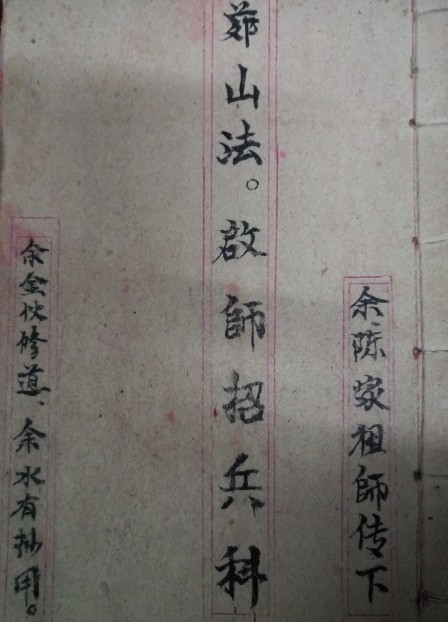 余陈家祖師传下
茆山法。啟師招兵科
余金伙修道、余水有抄用。